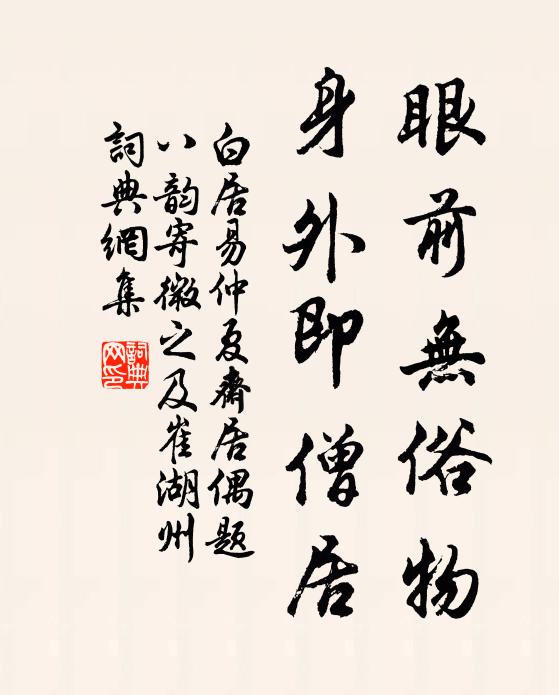 眼前無俗物
身外即僧居
白居易仲夏齋居偶题
八韵寄微之及崔湖州
詞典網集
詞典網印